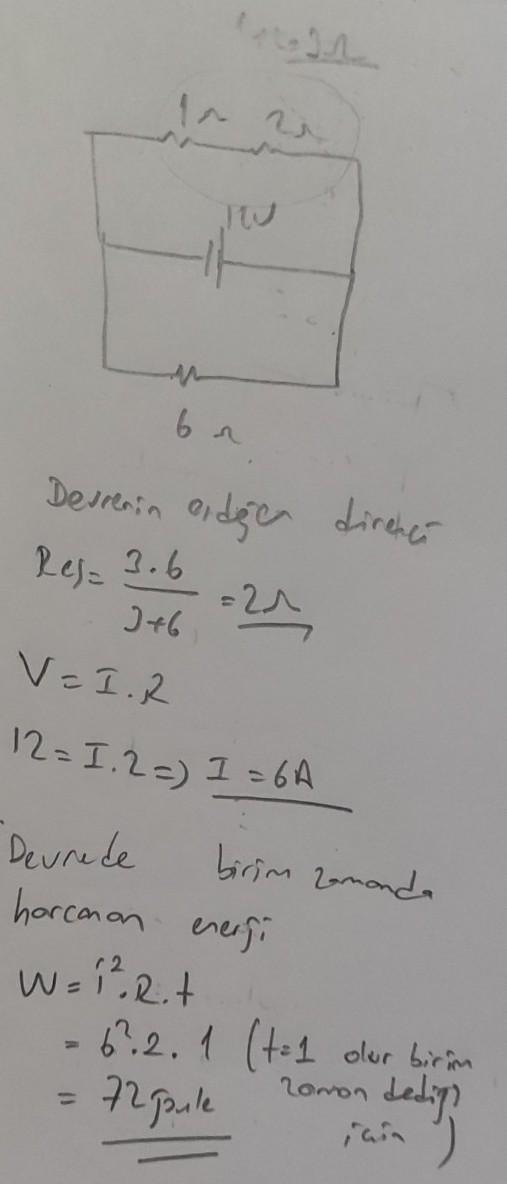 1Ω 2Ω
12V
6Ω
Devrenin eşdeğer direnci
Reş = 3.6 / 3+6 = 2Ω
V = I.R
12 = I.2 => I = 6A
Devrede birim zamanda
harcanan enerji
W = i².R.t
= 6².2.1 (t=1 olur birim
= 72 joule zaman dediği
için)